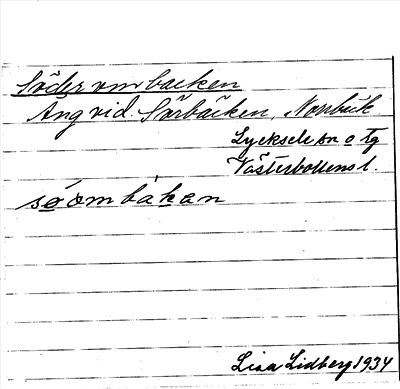 Söder om backen
Äng vid Sörbäcken, Norrbäck
Lycksele sn o tg
Västerbottens l.
söombákan
Lisa Lidberg 1934